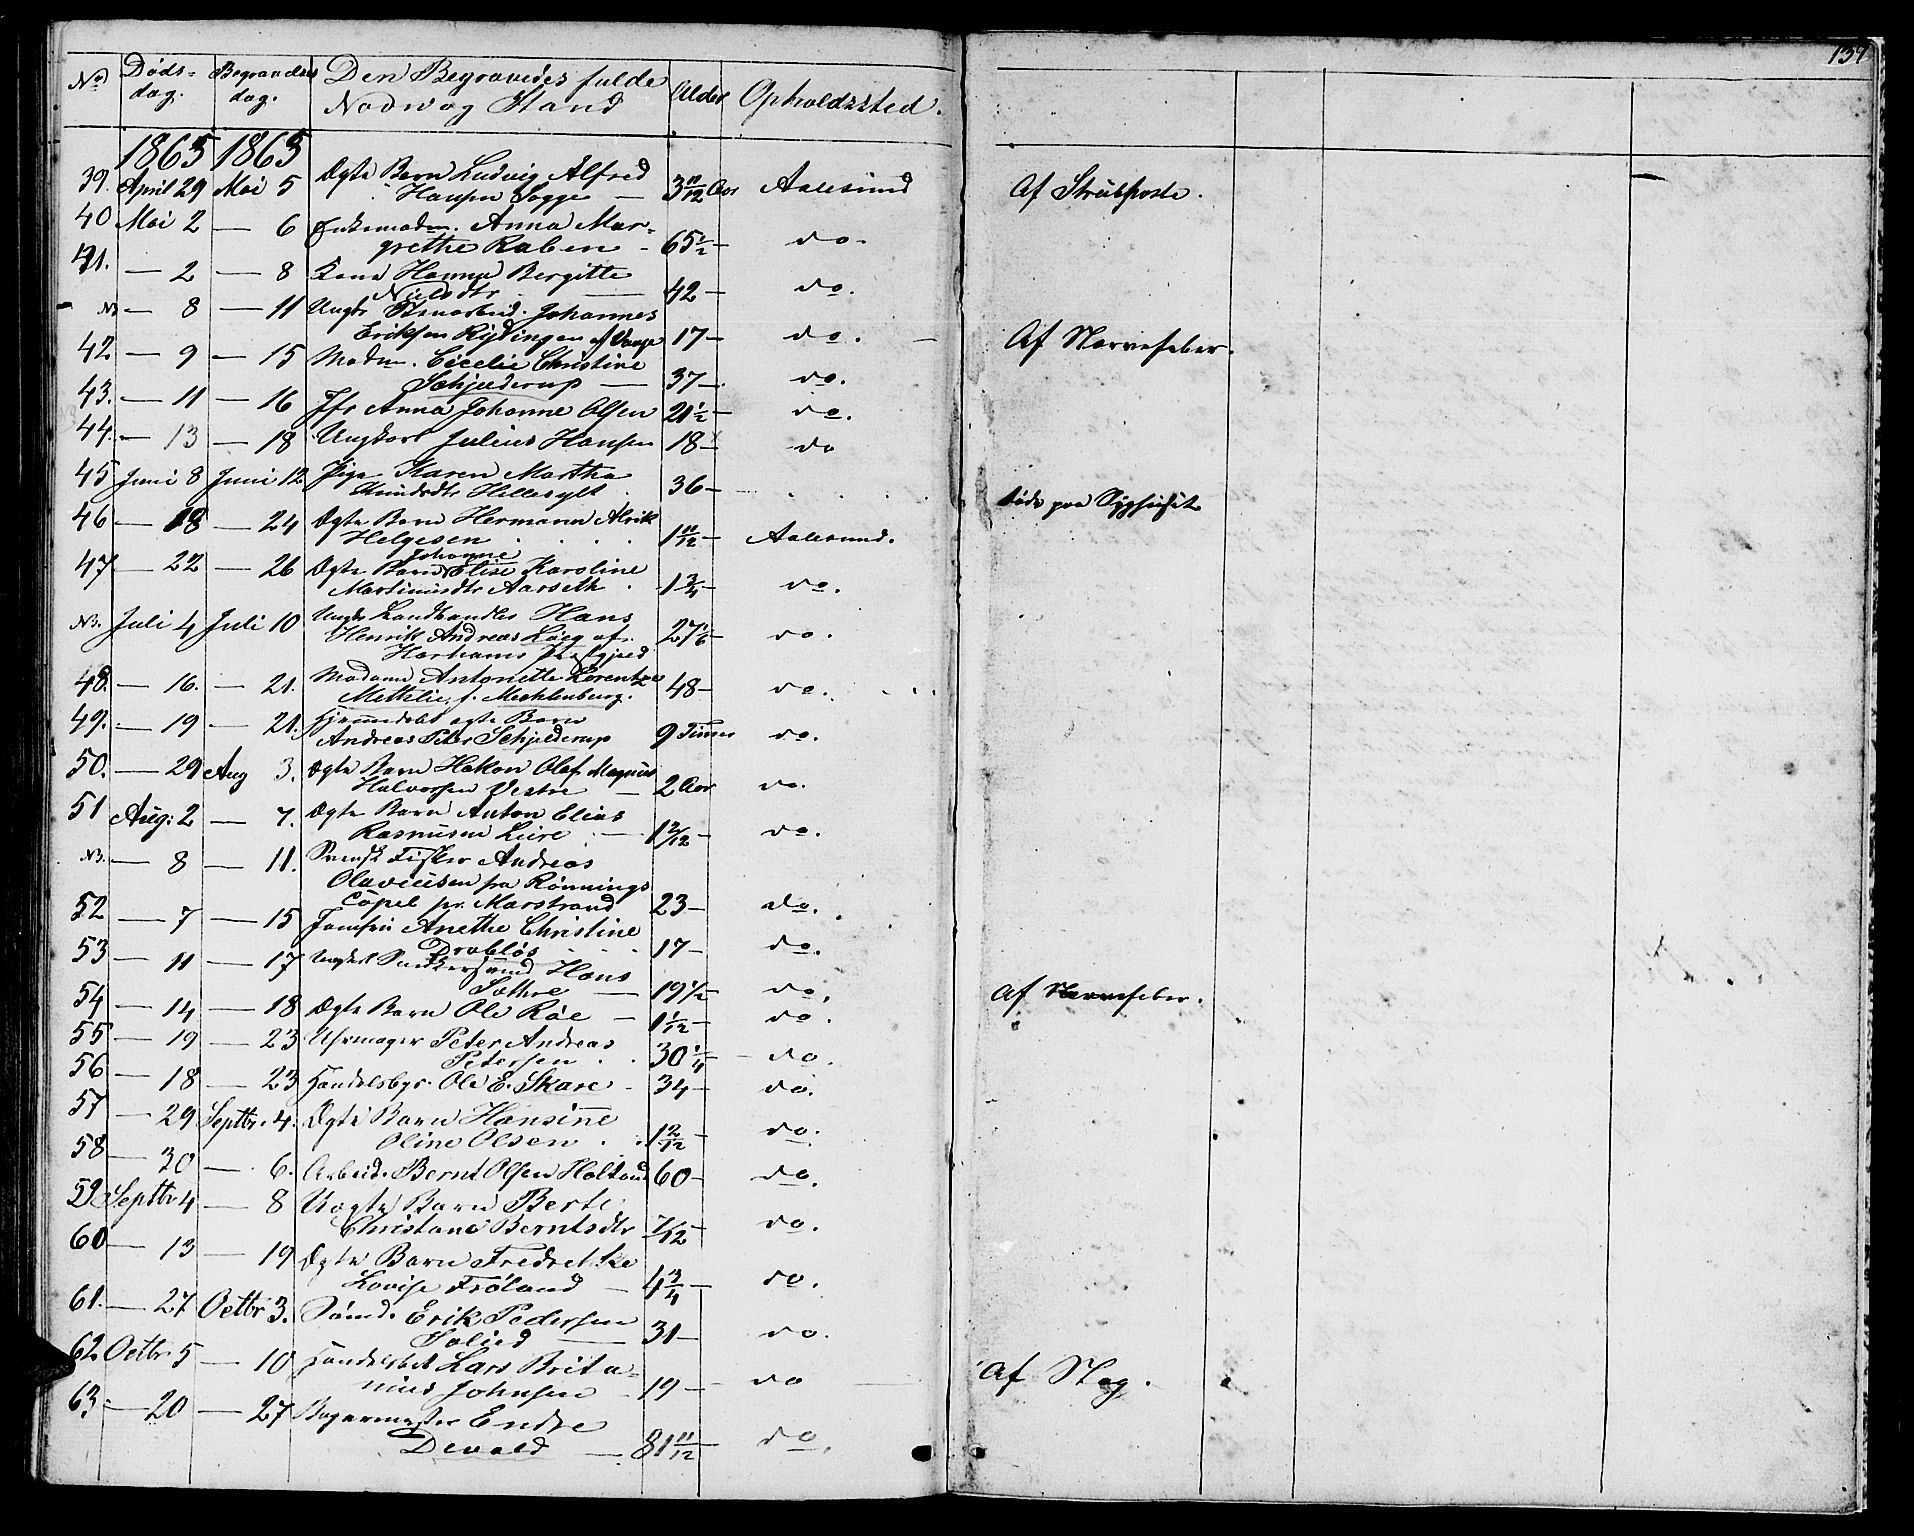 137
No Døds- Begravelses Den Begravedes fulde Alder Opholdssted.
dag. dag. Navn og Stand
1865 1865
39. April 29 Mai 5 Ægte Barn Ludvig Alfred
Hansen Sogge — 3 11/12 Aar Aalesund Af Strubhoste.
40 Mai 2 — 6 Enkemadm. Anna Mar-
grethe Raben — 65 1/2 — do.
41. — 2 — 8 Kone Hanna Bergitte
Nielsdtr — 42 — do.
— 8 — 11 Ungk. Johannes
Eriksen af 17 — do. Af Nervefeber.
42 — 9 — 15 Madm. Cicelie Christine
Schjelderup — 37 — do.
43. — 11 — 16 Jfr Anna Johanne Olsen 21 1/2 — do.
44. — 13 — 18 Ungkarl Julius Hansen 18 — do
45 Juni 8 Juni 12 Pige Karen Martha
Knudsdtr Hellesylt 36 — døde paa Sygehuset
46 — 18 — 24 Ægte Barn Hermann Alrik
Helgesen 1 11/12 — Aalesund.
Johanne
47 — 22 — 26 Ægte Barn Elise Karoline
Martinusdtr Aarseth 1 3/4 — do.
NB. Juli 4 Juli 10 Ungk. Landhandler Hans
Henrik Andreas af 27 1/6 — do.
Harhams Præstgjeld
48. — 16. — 21. Madame Antonette Lorentze
Mettelie, f. Mecklenburg. 48 — do.
49. — 19 — 21. Hjemmedøbt ægte Barn
Andreas Peter Schjelderup 9 Timer do.
50. — 29 Aug 3. Ægte Barn Hakon Olaf Magnus
Halvorsen Vestre — 2 Aar do.
51 Aug: 2 — 7. Ægte Barn Anton Elias
Rasmusen — 1 2/12 — do.
NB. — 8 — 11. Svensk Fisker Andreas
Olaviusen fra Rönnings
Capel pr. Marstrand 23 — do.
52 — 7 — 15 Jomfru Anethe Christine
Drabløs 17 — do.
53 — 11 — 17 Ungkl Hans
Sæthre — 19 1/2 — do. Af Nervefeber.
54 — 14 — 18 Ægte Barn Ole Röe — 1 1/12 — do.
55 — 19 — 23 Uhrmager Peter Andreas
Petersen 30 1/4 — do.
56 — 18 — 23 Handelsbgr. Ole E. Skare 34 — do.
57 — 29 Septbr. 4. Ægte Barn Hansine
Oline Olsen 1 2/12 — do.
58 — 30 — 6. Arbeid. Bernt Olsen 60 — do.
59 Septbr 4 — 8 Uægte Barn Berte
Christane Berntsdtr 7/12 — do.
60 — 13 — 19 Ægte Barn Fredrekke
Lovise Fröland — 4 3/4 — do.
61. — 27 Octbr 3. Sömd. Erik Pedersen
— 31 — do.
62 Octbr. 5 — 10 Handelsbet. Lars Brita-
nius Johnsen 19 — do Af Slag.
63. — 20 — 27 Bagermester Endre
Devold — 81 11/12 — do.